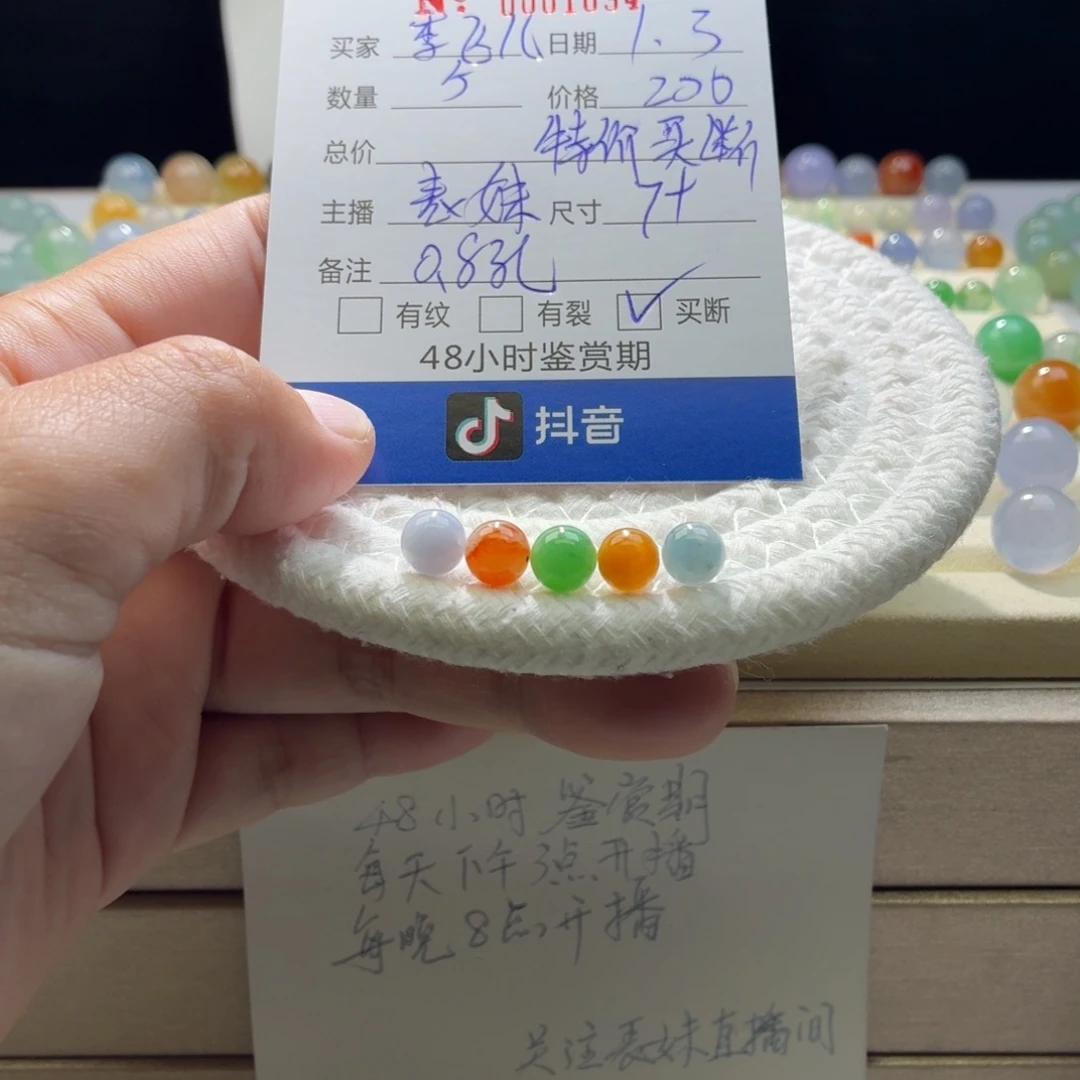 No: 0001034
买家 李飞儿 日期 1.3
数量 5 价格 200
总价 特价买断
主播 表妹 尺寸 7+
备注 0.8孔
有纹 有裂 ✓ 买断
48小时鉴赏期
抖音
48小时鉴赏期
每天下午3点开播
每晚8点开播
关注表妹直播间